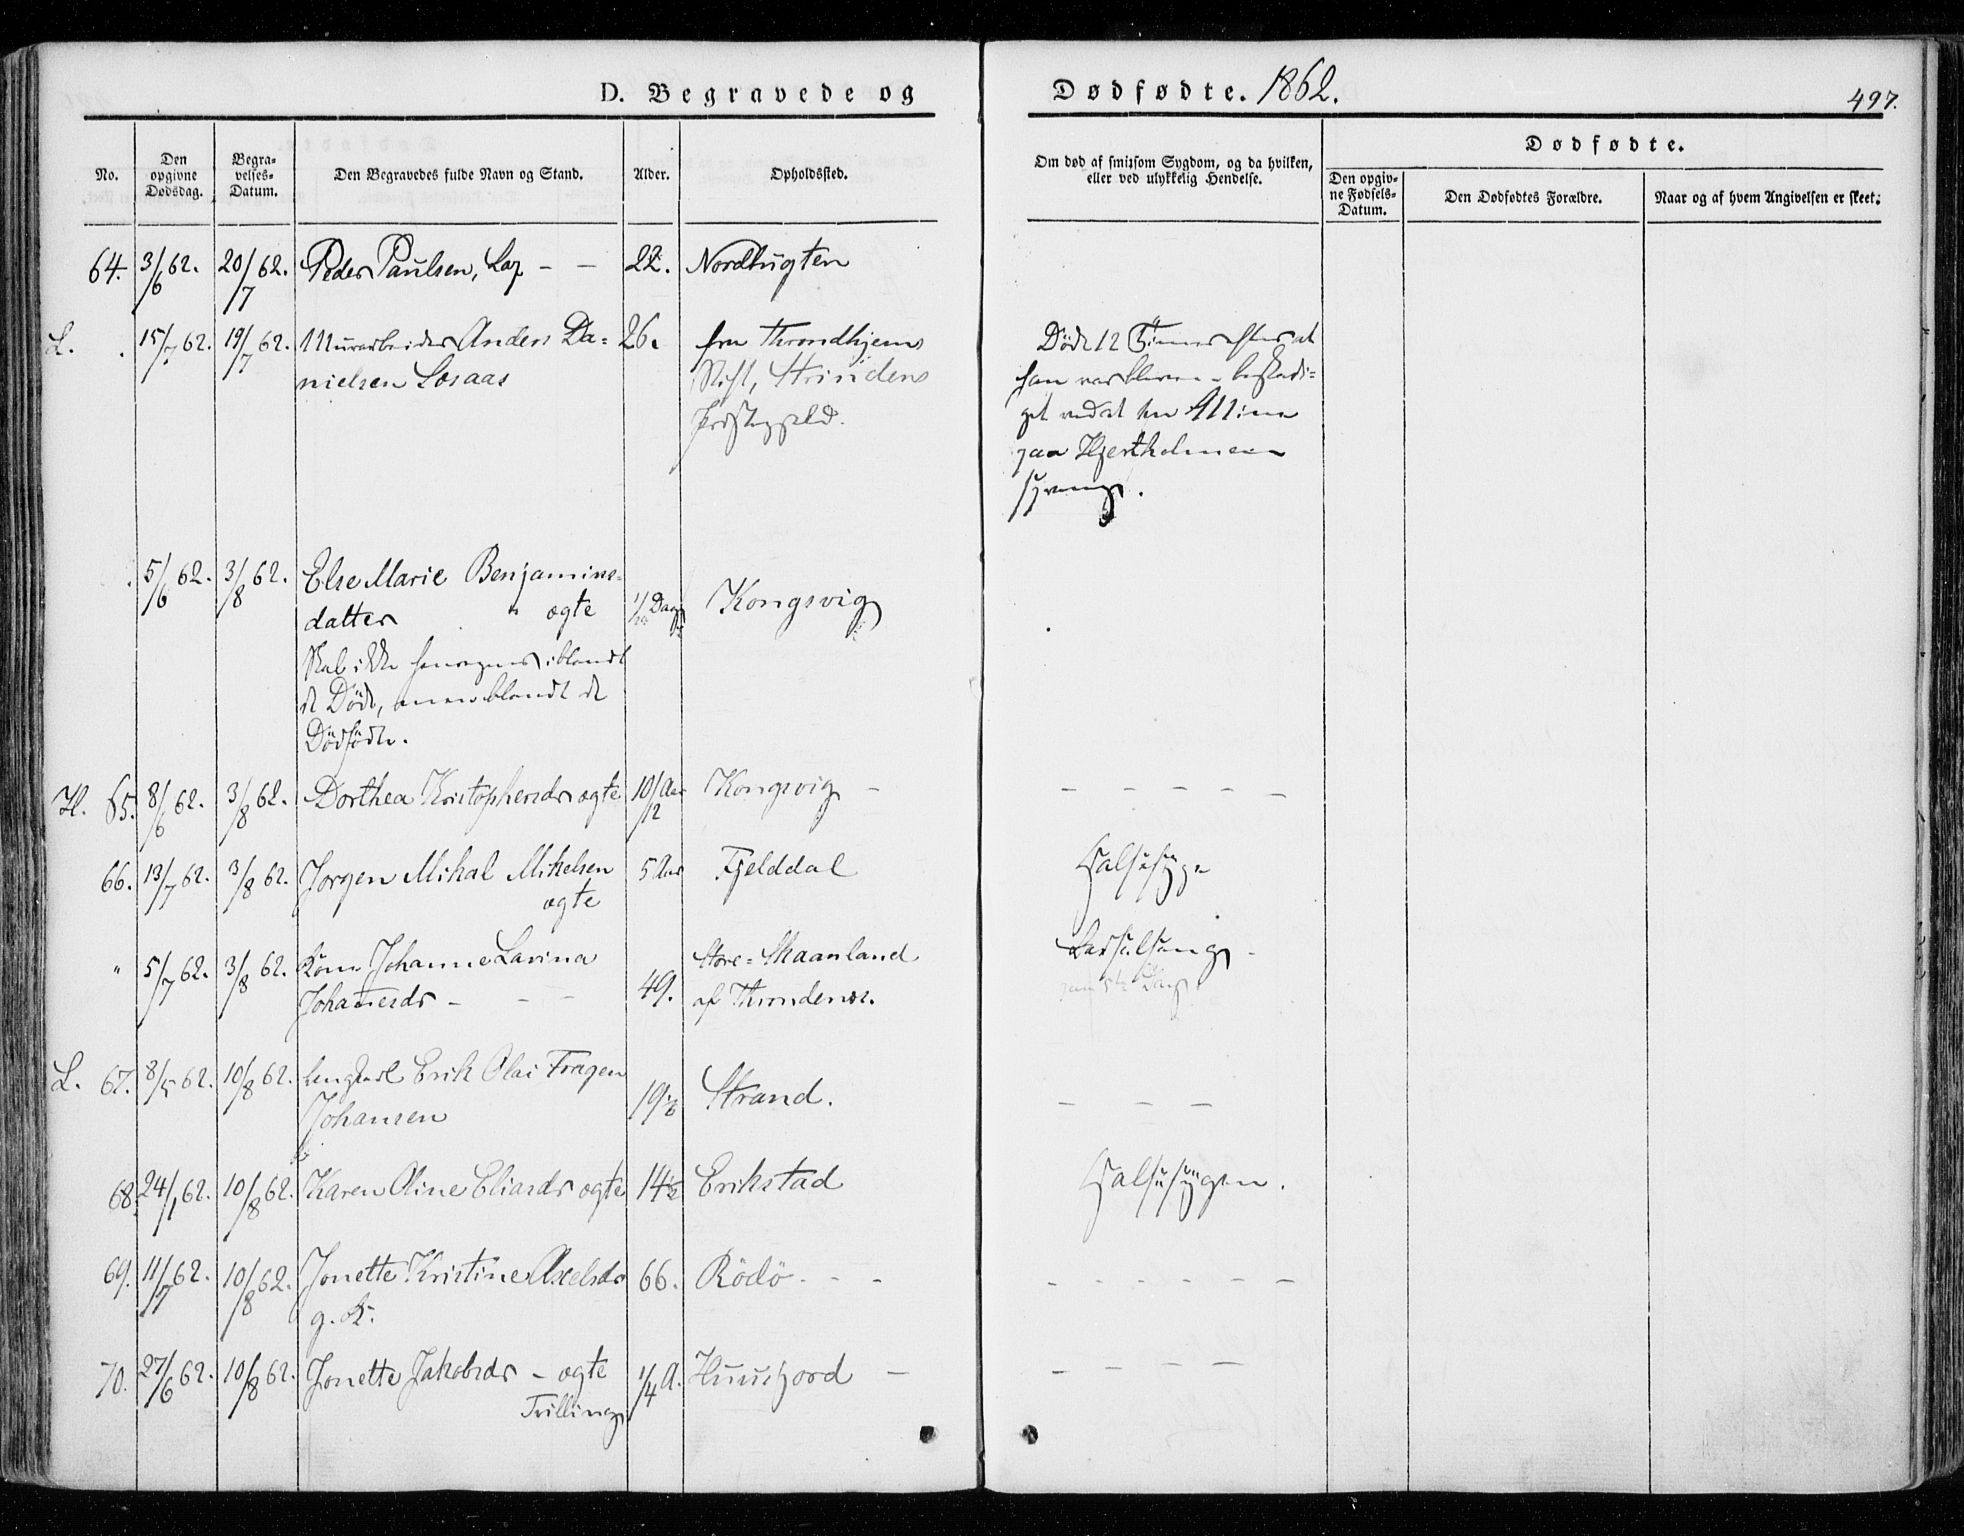 D. Begravede og Dødfødte. 1862. 497.
Dødfødte.
No. Den opgivne Dødsdag. Begravelses-Datum. Den Begravedes fulde Navn og Stand. Alder. Opholdssted. Om død af smitsom Sygdom, og da hvilken, eller ved ulykkelig Hendelse. Den opgivne Fødsels-Datum. Den Dødfødtes Forældre. Naar og af hvem Angivelsen er skeet.
64. 3/6 62. 20/7 62. Peder Paulsen, Lap - - 22. Nordbugten
L. 15/7 62. 19/7 62. Murarbeider Anders Da= 26. fra Throndhjems Døde 12 Timer efter at
nielsen Losaas Stift, Strindens han var bleven beskadi=
Præstegjeld. get ved at en Mine
paa Hjertholmen
sprang.
5/6 62. 3/8 62. Else Marie Benjamins=
datter ægte 1/2 Dag Kongsvig
Skal ikke henregnes iblandt
de Døde, men blandt de
Dødfødte.
H. 65. 8/6 62. 3/8 62. Dorthea Kristophersdr ægte 10/12 Aar Kongsvig - - - - - -
66. 13/7 62. 3/8 62. Jørgen Mikal Mikelsen 5 Aar Fjelddal Halssyge
ægte
" 5/7 62. 3/8 62. Kone Johanne Lavina Store=Skaanland Barselseng -
Johanesdr - - - 49. af Throndenes. Dag
L. 67. 8/5 62. 10/8 62. Ungkarl Erik Olai
Johansen 19 1/2 Strand. - - -
68. 24/1 62. 10/8 62. Karen Oline Eliasdr ægte 14 1/2 Erikstad Halssygen.
69. 11/7 62. 10/8 62. Jonette Kristine Axelsdr 66. Rødø - - - - - - - -
g. K.
70. 27/6 62. 10/8 62. Jonette Jakobsdr - ægte 1/4 A. Huusfjord - - - - -
Tvilling